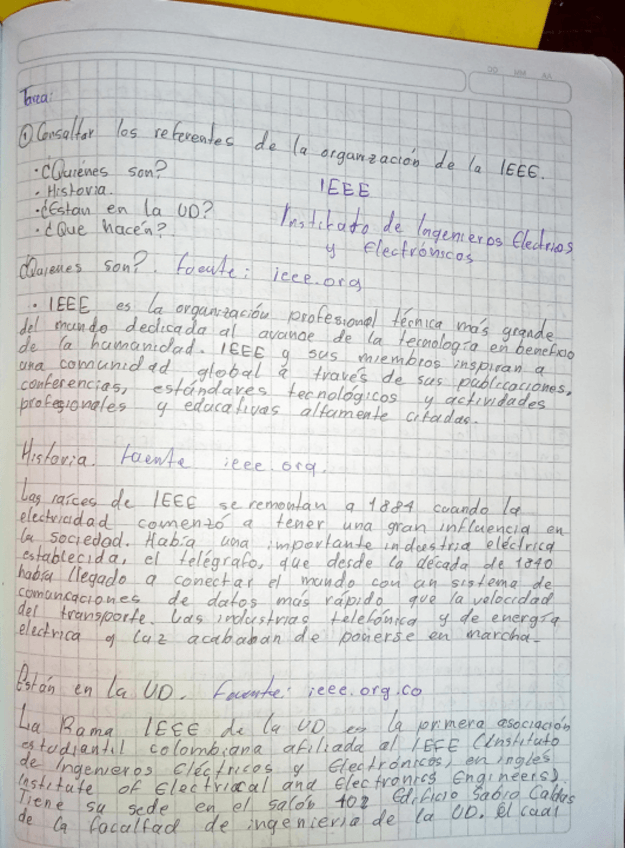 DD MM AA
Tarea:
① Consultar los referentes de la organización de la IEEE.
· ¿Quiénes son?
· Historia.
· ¿Estan en la UD?
· ¿Que hacen?
IEEE
Instituto de Ingenieros Electricos
y Electrónicos
¿Quienes son?. Fuente: ieee.org
· IEEE es la organización profesional técnica más grande
del mundo dedicada al avance de la tecnología en beneficio
de la humanidad. IEEE y sus miembros inspiran a
una comunidad global a través de sus publicaciones,
conferencias, estándares tecnológicos y actividades
profesionales y educativas altamente citadas.
Historia. Fuente ieee.org.
Las raíces de IEEE se remontan a 1884 cuando la
electricidad comenzó a tener una gran influencia en
la sociedad. Había una importante industria eléctrica
establecida, el telégrafo, que desde la década de 1840
había llegado a conectar el mundo con un sistema de
comunicaciones de datos más rápido que la velocidad
del transporte. Las industrias telefónica y de energía
electrica y luz acababan de ponerse en marcha.
Están en la UD. Fuente: ieee.org.co
La Rama IEEE de la UD es la primera asociación
estudiantil colombiana afiliada al IEEE (Instituto
de Ingenieros Eléctricos y Electrónicos, en inglés
Institute of Electrical and Electronics Engineers).
Tiene su sede en el salón 402 Edificio Sabio Caldas
de la facultad de ingeniería de la UD. El cual